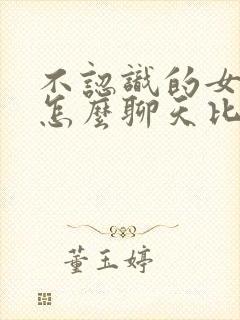 不認識的女
怎麼聊天比
董玉婷